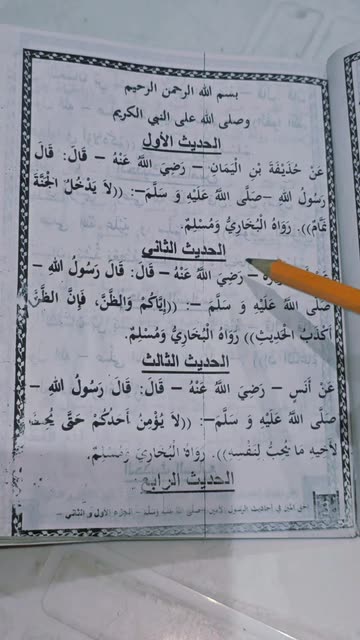 بسم الله الرحمن الرحيم
وصلى الله على النبي الكريم
الحديث الأول
عَنْ حُذَيْفَةَ بْنِ الْيَمَانِ – رَضِيَ اللَّهُ عَنْهُ – قَالَ: قَالَ
رَسُولُ اللهِ –صَلَّى اللَّهُ عَلَيْهِ وَ سَلَّمَ–: ((لاَ يَدْخُلُ الْجَنَّةَ
نَمَّامٌ)). رَوَاهُ الْبُخَارِيُّ وَمُسْلِمٌ.
الحديث الثاني
– رَضِيَ اللَّهُ عَنْهُ – قَالَ: قَالَ رَسُولُ اللهِ –
صَلَّى اللَّهُ عَلَيْهِ وَ سَلَّمَ –: ((إِيَّاكُمْ وَالظَّنَّ، فَإِنَّ الظَّنَّ
أَكْذَبُ الْحَدِيثِ)) رَوَاهُ الْبُخَارِيُّ وَمُسْلِمٌ.
الحديث الثالث
عَنْ أَنَسٍ – رَضِيَ اللَّهُ عَنْهُ – قَالَ: قَالَ رَسُولُ اللهِ –
صَلَّى اللَّهُ عَلَيْهِ وَ سَلَّمَ–: ((لاَ يُؤْمِنُ أَحَدُكُمْ حَتَّى
لأَخِيهِ مَا يُحِبُّ لِنَفْسِهِ)). رَوَاهُ الْبُخَارِيُّ وَمُسْلِمٌ.
الحديث الرابع
في أحاديث الرسول الأمين –صلى الله عليه وسلم – الجزء الأول و الثاني –